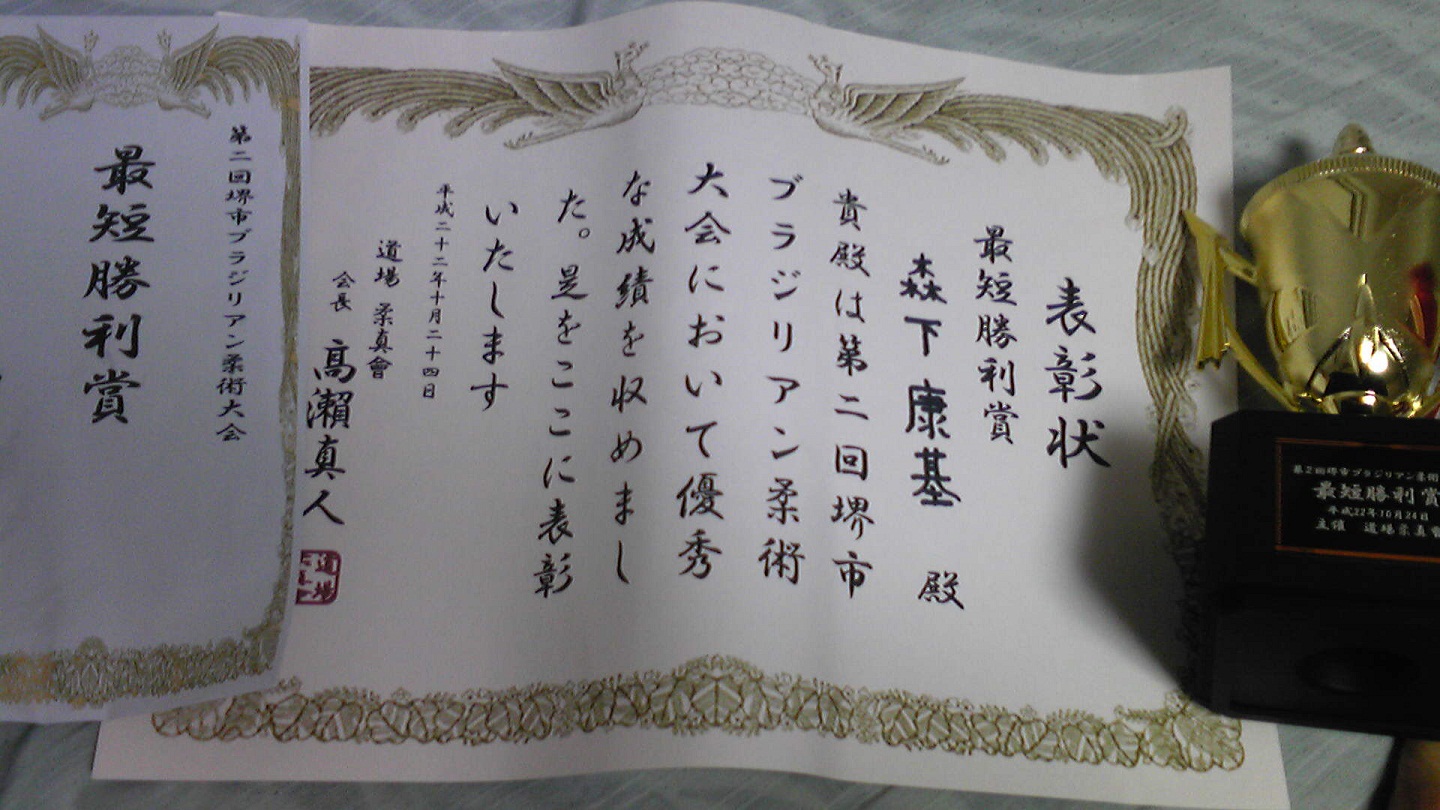 表彰状
最短勝利賞
森下康基 殿
貴殿は第二回堺市
ブラジリアン柔術
大会において優秀
な成績を収めまし
た。是をここに表彰
いたします
平成二十二年十月二十四日
道場 柔真會
会長 高瀬真人
道場
第二回堺市ブラジリアン柔術大会
最短勝利賞
第2回堺市ブラジリアン柔術
最短勝利賞
平成22年10月24日
主催 道場柔真會